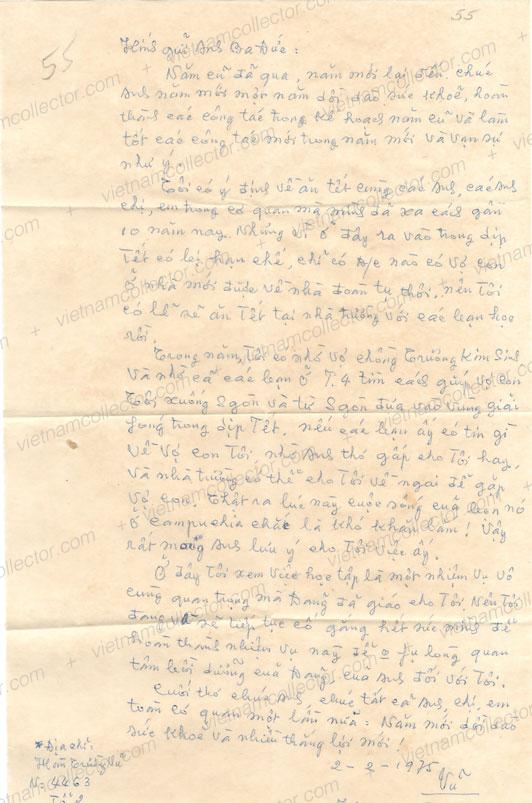 55
55
Kính gửi Anh Ba Đức:
Năm cũ đã qua, năm mới lại đến, chúc
Anh năm mới một năm dồi dào sức khoẽ, hoàn
thành các công tác trong kế hoạch năm cũ và làm
tốt các công tác mới trong năm mới và vạn sự
như ý.
Tôi có ý định về ăn tết cùng các Anh, các
chị, em trong cơ quan mà mình đã xa cách gần
10 năm nay. Nhưng vì ở đây ra vào trong dịp
Tết có lẽ hạn chế, chỉ có A/c nào có vợ con
ở nhà mới được về nhà đoàn tụ thôi, nên Tôi
có lẽ sẽ ăn Tết tại nhà trường với các bạn học
rồi.
Trong năm, Tôi có nhờ vợ chồng Trương Kim Sinh
và nhờ cả các bạn ở T.4 tìm cách giúp vợ con
Tôi xuống Sgòn và từ Sgòn đưa vào vùng giải
fóng trong dịp Tết. nếu các bạn ấy có tin gì
về vợ con Tôi, nhờ Anh thơ gấp cho Tôi hay,
và nhà trường có thể cho Tôi về ngoài để gặp
vợ con. Thật ra lúc này cuộc sống của bọn nó
ở Campuchia chắc là khó khăn lắm! Vậy
rất mong Anh lưu ý cho Tôi việc ấy.
Ở đây Tôi xem việc học tập là một nhiệm vụ vô
cùng quan trọng mà Đảng đã giao cho Tôi. Nên Tôi
đang và sẽ tiếp tục cố gắng hết sức mình để
hoàn thành nhiệm vụ này để o fụ lòng quan
tâm bồi dưỡng của Đảng của Anh đối với Tôi.
Cuối thơ chúc Anh, chúc tất cả Anh, chị, em
toàn cơ quan một lần nữa: Năm mới dồi dào
sức khoẽ và nhiều thắng lợi mới.
2-2-1975
Vũ
* Địa chỉ:
N: 4463
Tổ 2
vietnamcollector.com